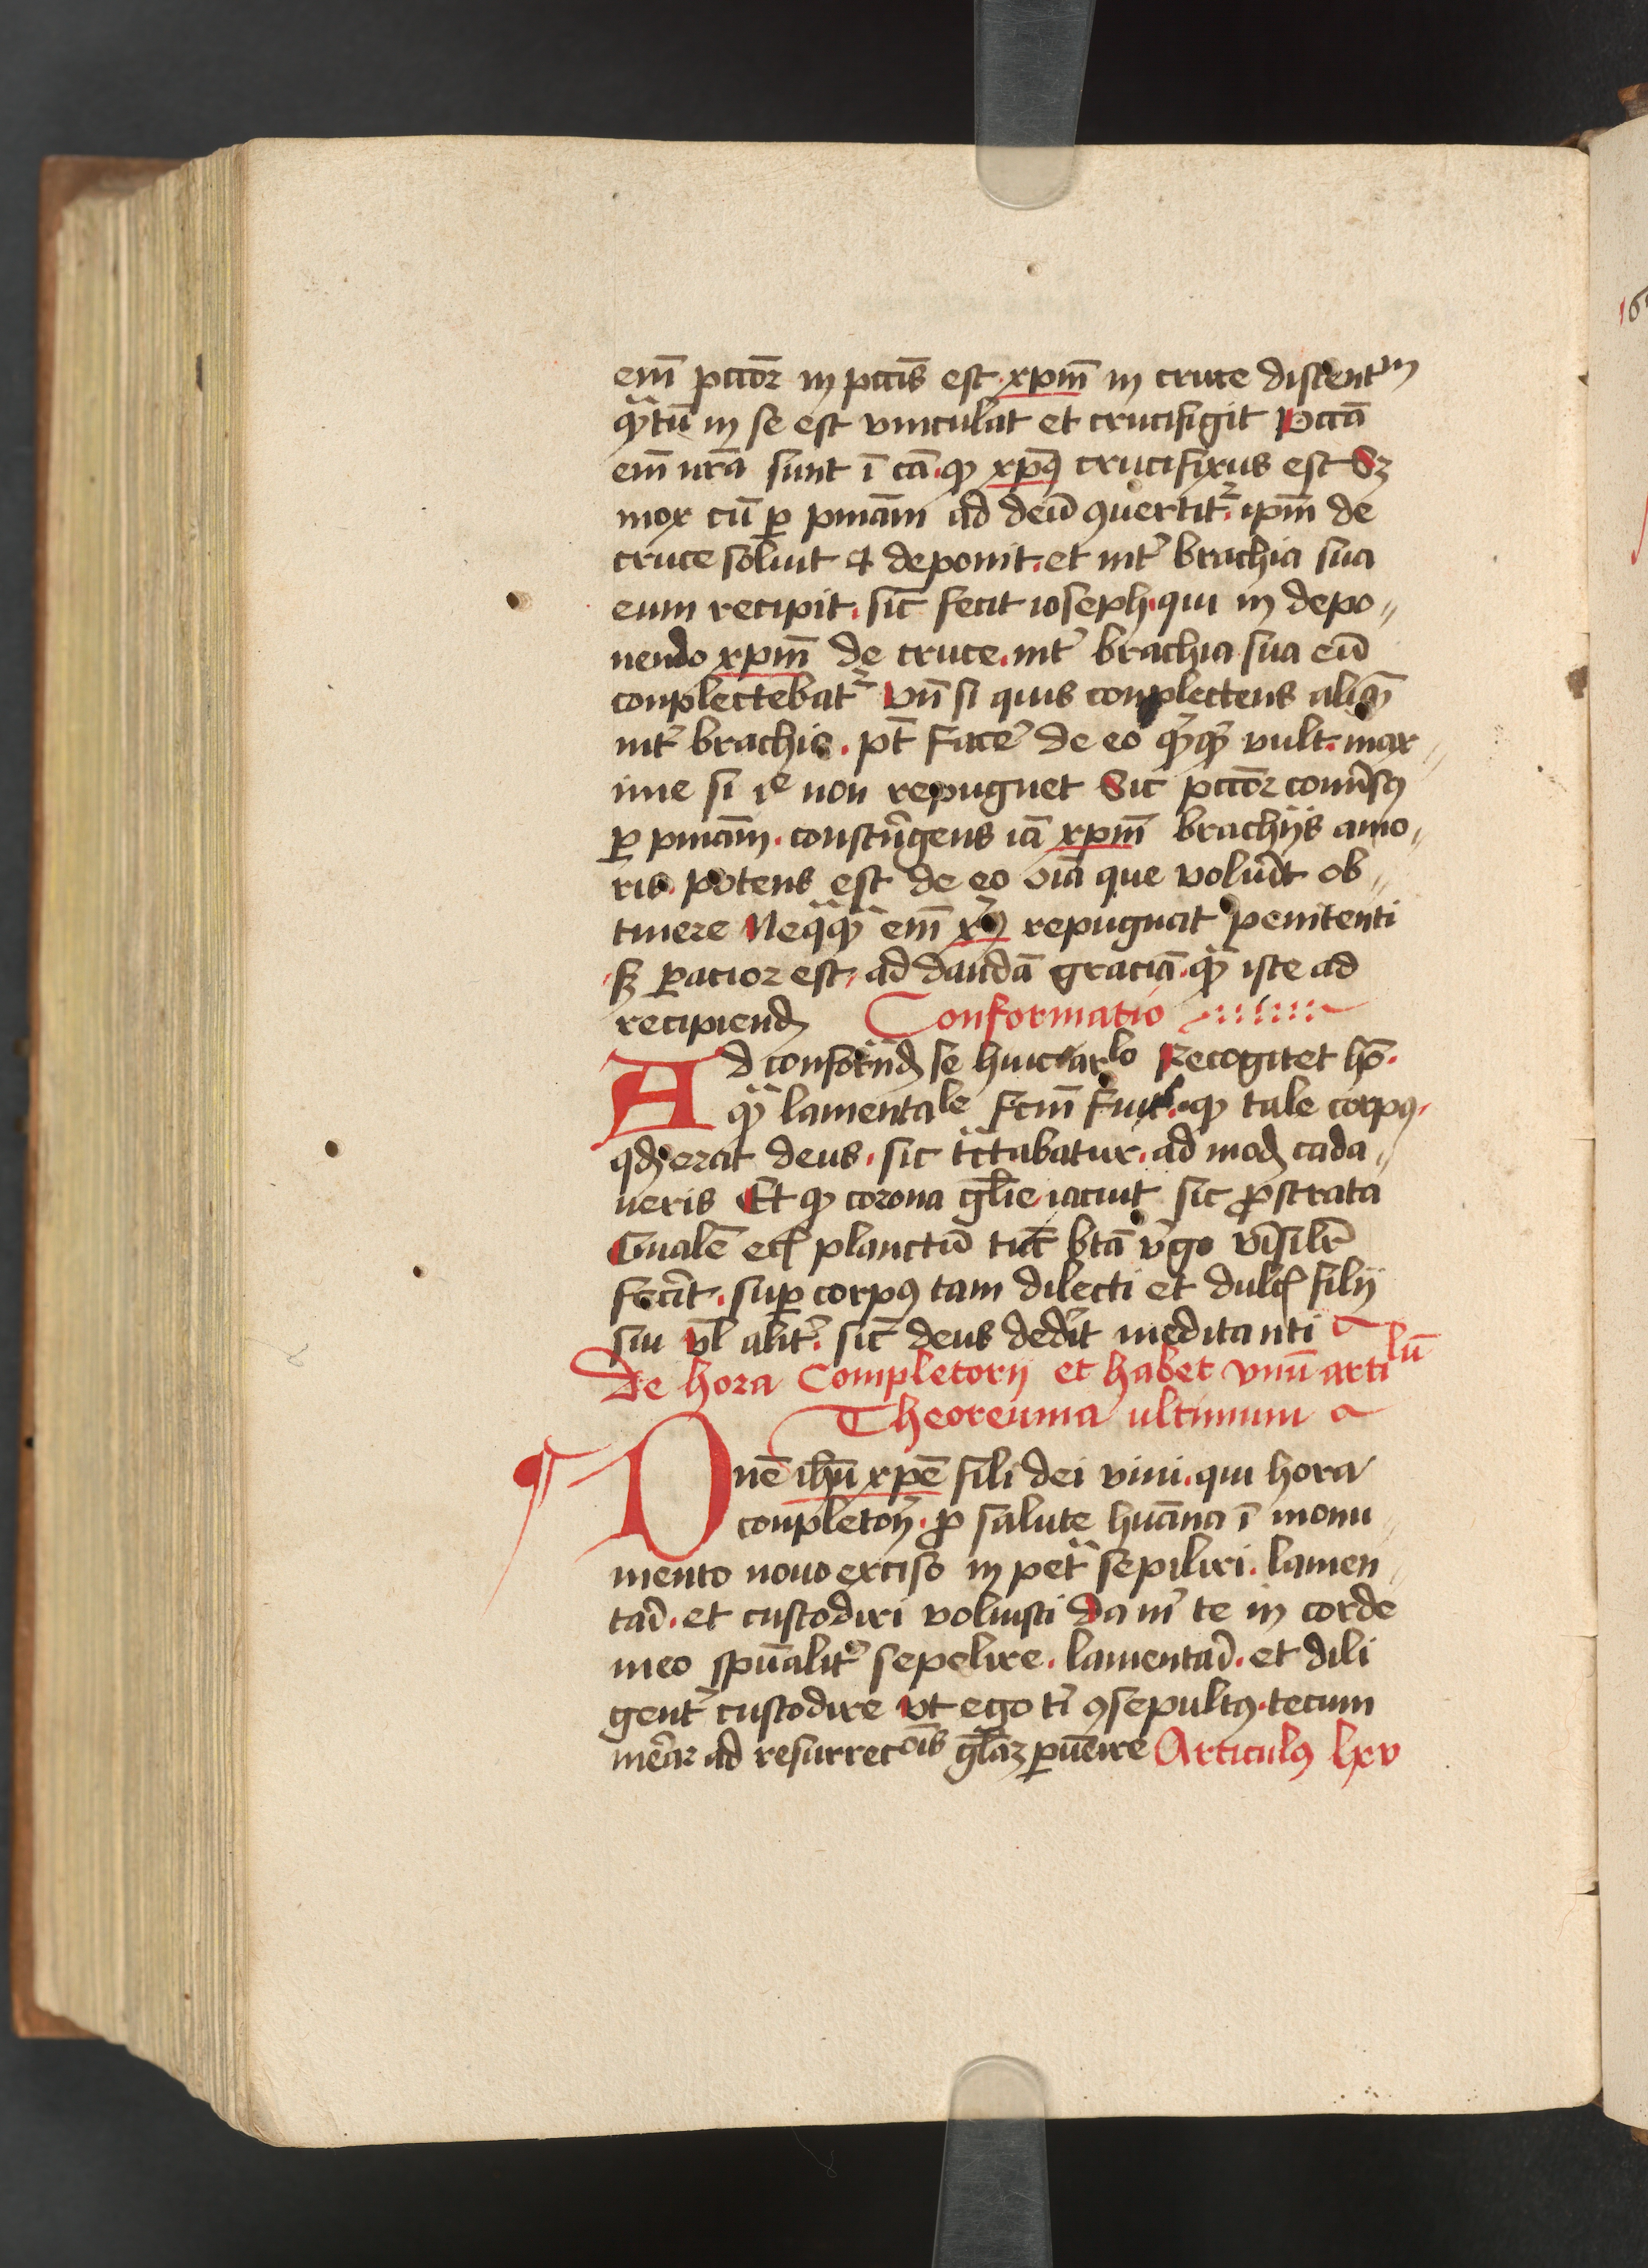 em̄ pcc̄or in pcc̄is est xpm̄ in cruce discentm
qͣntū in se est vinculat et crucifigit Pcc̄a
em̄ nr̄a sunt ī cā qꝫ xp̄ꝯ crucifixus est Sꝫ
mox cū ꝑ pn̄iam ad deū ꝯuertitur ip̄m de
cruce soluit et deponit et int̉ brachia sua
eum recipit sic̄ fecit ioseph qui in depo„
nendo xpm̄ de cruce int̉ brachia sua eū
conplectebatᷣ Vn̄ si quis conplectens aliqͫ
int̉ brachia pt̄ facē de eo qͥcqͥd vult max„
ime si iᵉ non repugnet Sic pcc̄or conuersꝯ
ꝑ pn̄iam constringens iā xpm̄ brachijs amo„
ris potens est de eo oīa que volūīt ob„
tinere Neqͣqͣ em̄ xp̄ꝯ repugnat penitenti
sꝫ ꝑacior est ad dandā graciā qͣ iste ad
recipiend̄ Conformatio
Ad conformād̄ se huic arlo Recogitet hō
qͣ lamentale fcm̄ fuit qꝫ tale corpꝯ
qd̄ erat deus sic tͣctabatur ad mod̄ cada„
ueris Et qꝫ corona glīe iacuit sic ꝓstrata
Qualē ecī planctū tūc btā vͥgo verisilr̄
fecīt suꝑ corpꝯ tam dilecti et dulcꝭ filij
sui vl̄ alit̉ sic̄ deus dedīt meditanti
De hora Completorij et habet vnū artilū
Theoreuma ultimum
¶ Dnē ihū xpē fili dei viui qui hora
conpletorij ꝓ salute huāna ī monu„
mento nouo exciso in petͣ sepiliri lamen„
tarī et custodiri voluisti Da m̄ te in corde
meo spūalit̉ sepelire lamentarī et dili
gent̉ custodire vt ego tͥ ꝯsepultꝯ tecum
mēar ad resurrecōis glāꝫ ꝑuēire Articulꝯ lxv